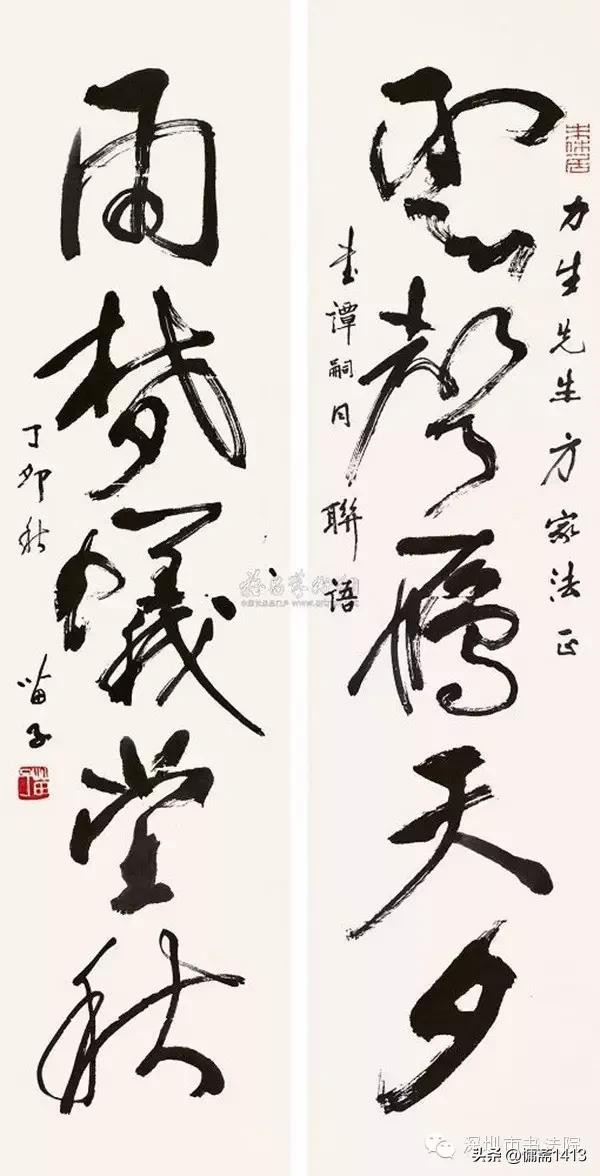 力生先生方家法正
雲聲鴈天夕
书譚嗣同聯語
雨夢蟻堂秋
丁卯秋 苗子
苗子
深圳市书法院
头条 @慵斋1413